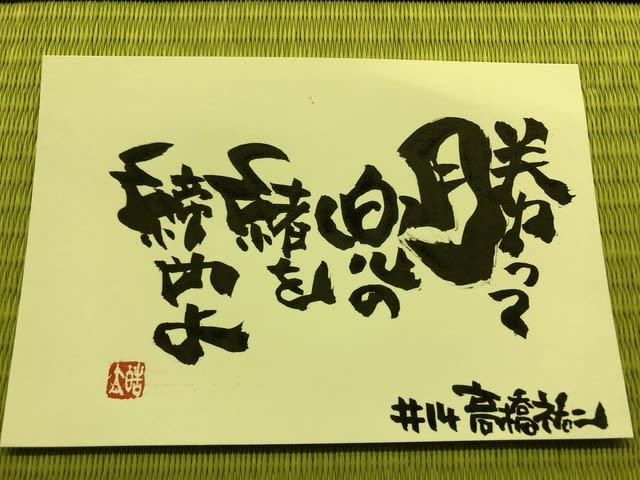 勝って
兜の
緒を
締めよ
#14 高橋祐二